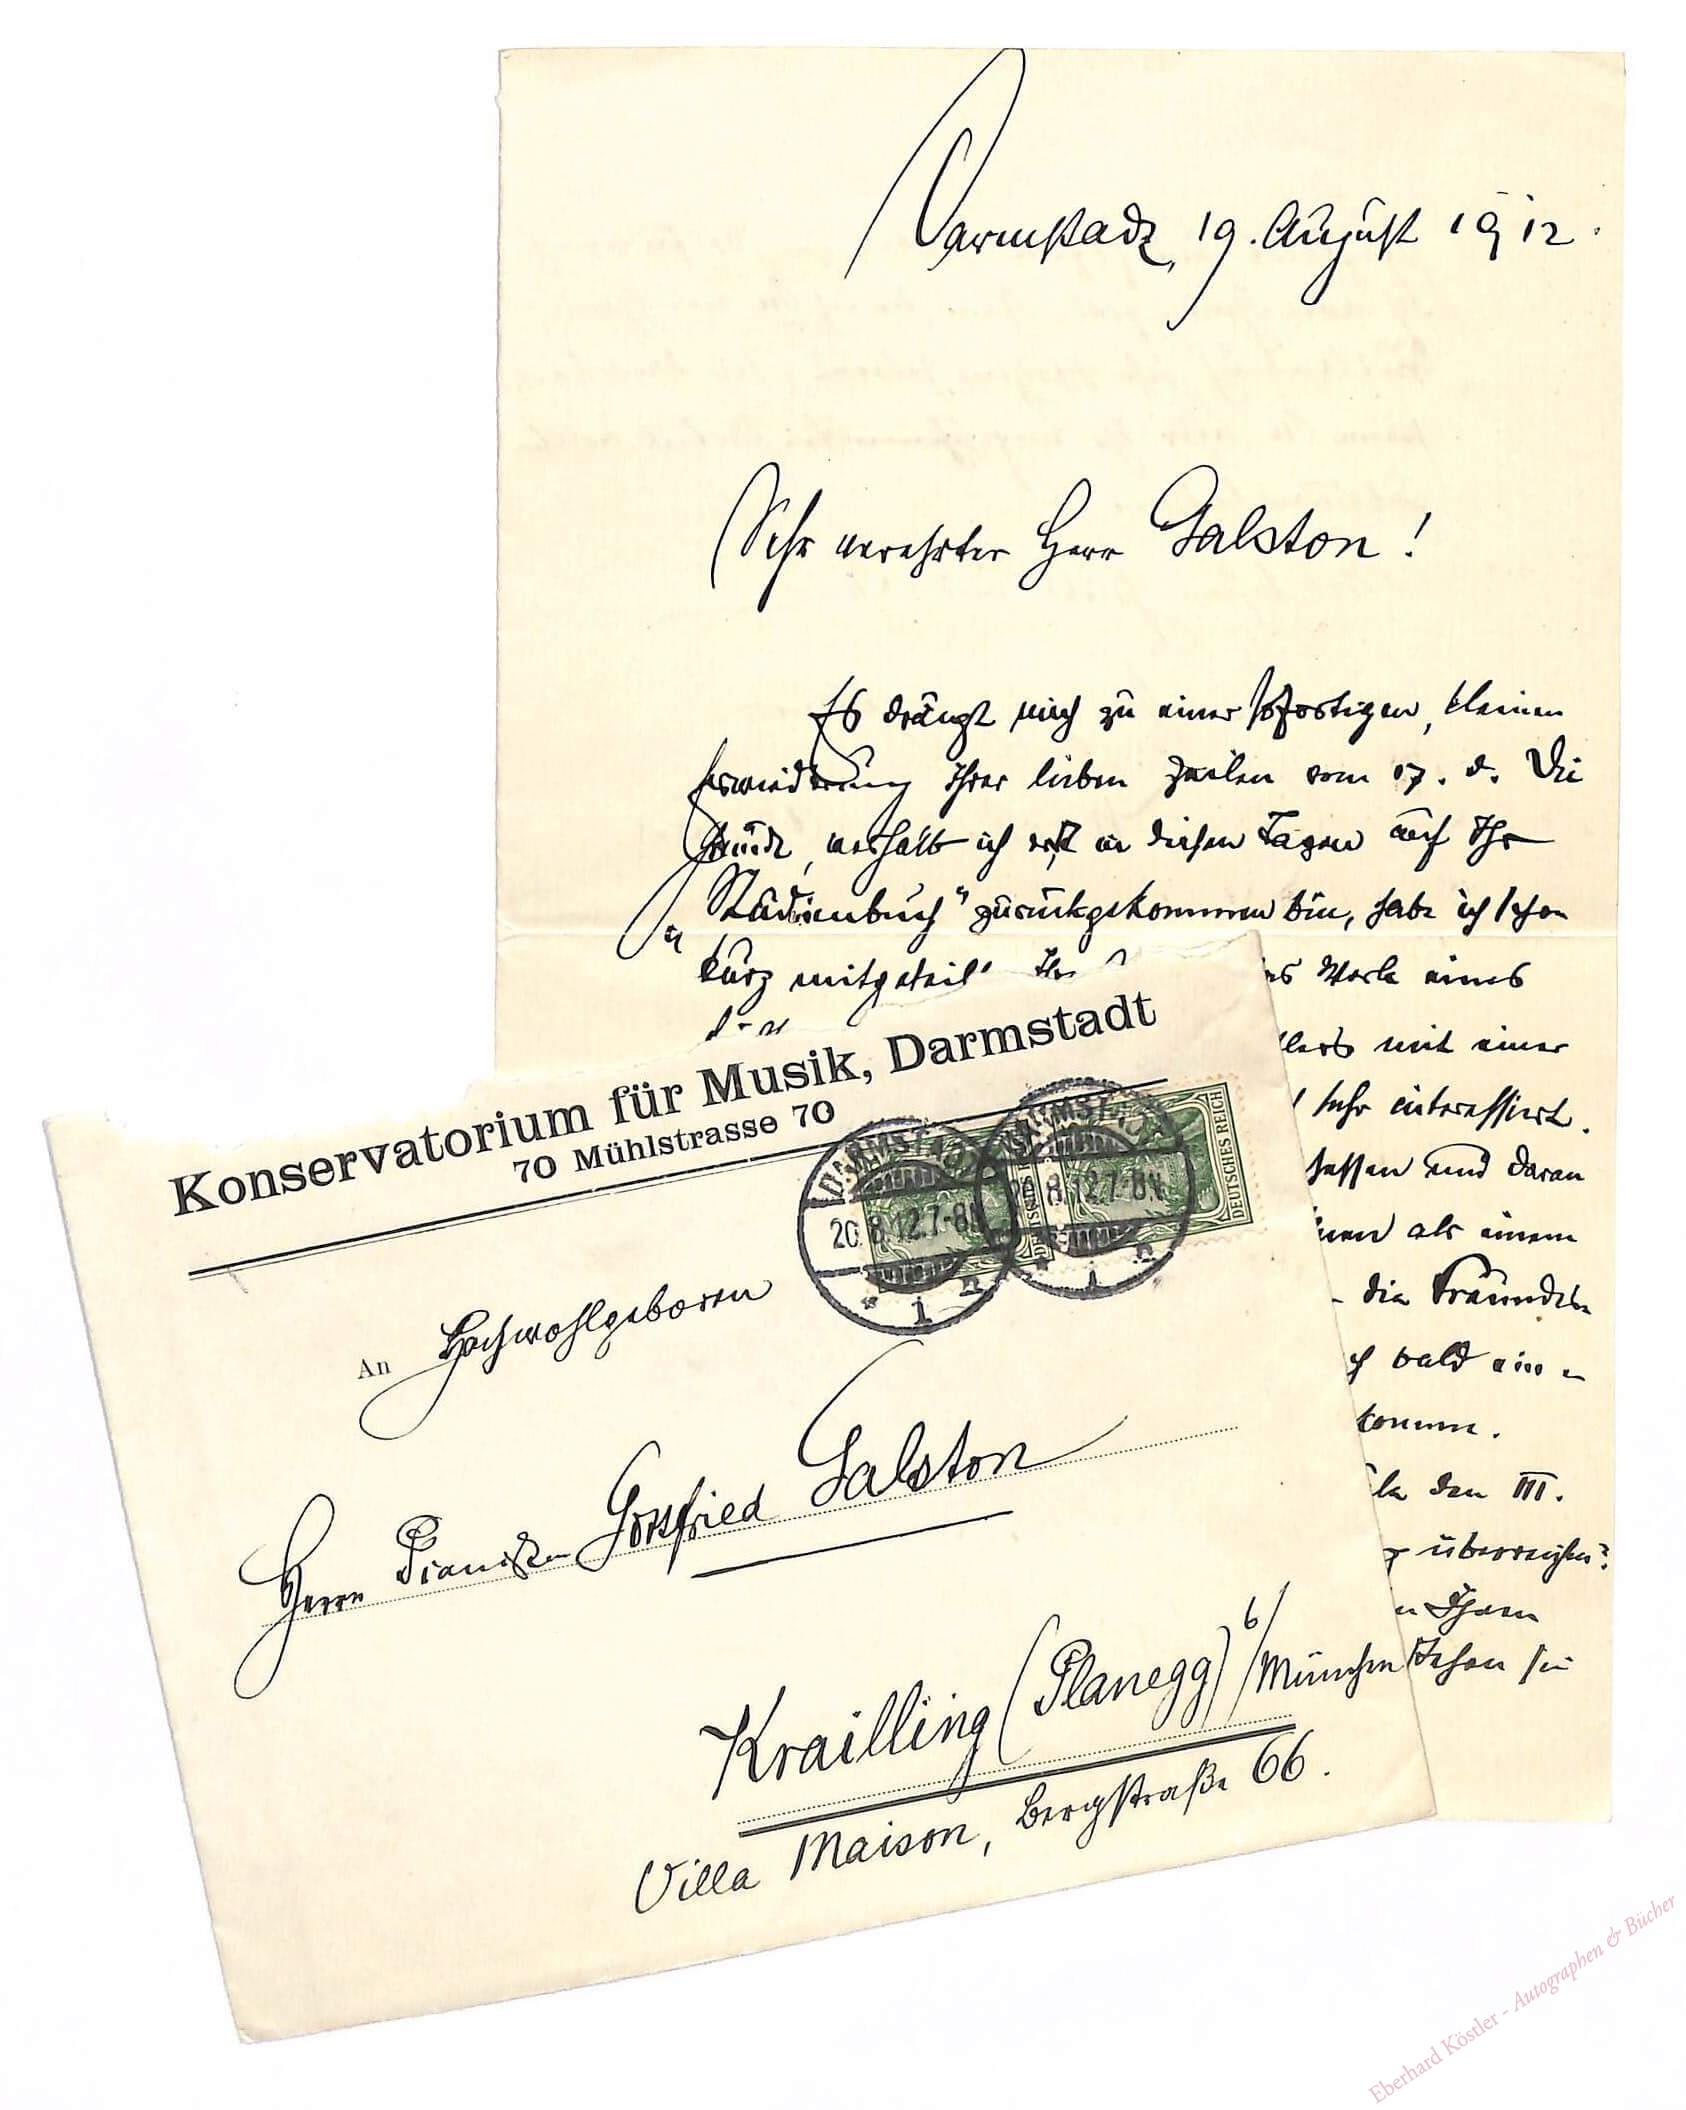 Darmstadt, 19. August 1912.
Sehr verehrter Herr Galston!
Es drängt mich zu einer sofortigen, kleinen
Erwiederung Ihrer lieben Zeilen vom 17. d. Die
Gründe, weshalb ich erst in diesen Tagen auf Ihr
"Studienbuch" zurückgekommen bin, habe ich schon
kurz mitgeteilt Werk eines
mit einer
sehr interessiert.
und daran
als einem
die Freundin
bald eine
komme.
den III.
überreichen?
Ihnen
sehen Sie
Konservatorium für Musik, Darmstadt
70 Mühlstrasse 70
DARMSTADT
20.8.12.7-8N.
* 1 n
DARMSTADT
20.8.12.7-8N.
* 1 n
DEUTSCHES REICH
An Hochwohlgeboren
Herrn Pianisten Gottfried Galston
Krailling (Planegg) b/München
Villa Maison, Bergstraße 66.
Eberhard Köstler - Autographen & Bücher